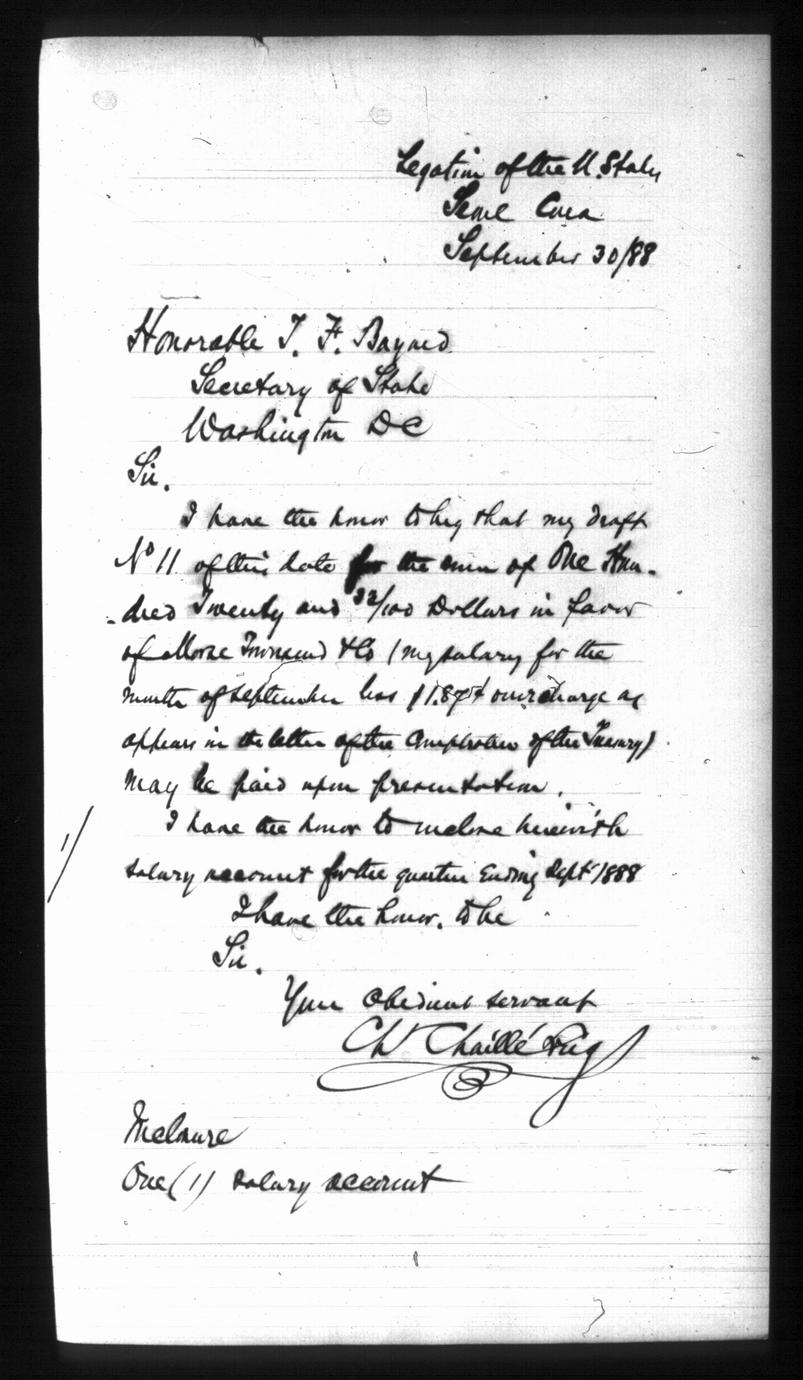 Legation of the U. States
Seoul Corea
September 30/88
Honorable T. F. Bayard
Secretary of State
Washington DC
Sir.
I have the honor to beg that my draft
No 11 of this date for the sum of One Hun-
-dred Twenty and 32/100 Dollars in favor
of Morse Townsend & Co (my salary for the
month of September less $1.87 overcharge as
appears in the letter of the Comptroller of the Treasury)
may be paid upon presentation.
I have the honor to inclose herewith
1/
salary account for the quarter Ending Sept 1888
I have the honor. to be
Sir.
Your Obedient servant
Ch Chaillé Long
Inclosure
One (1) salary account